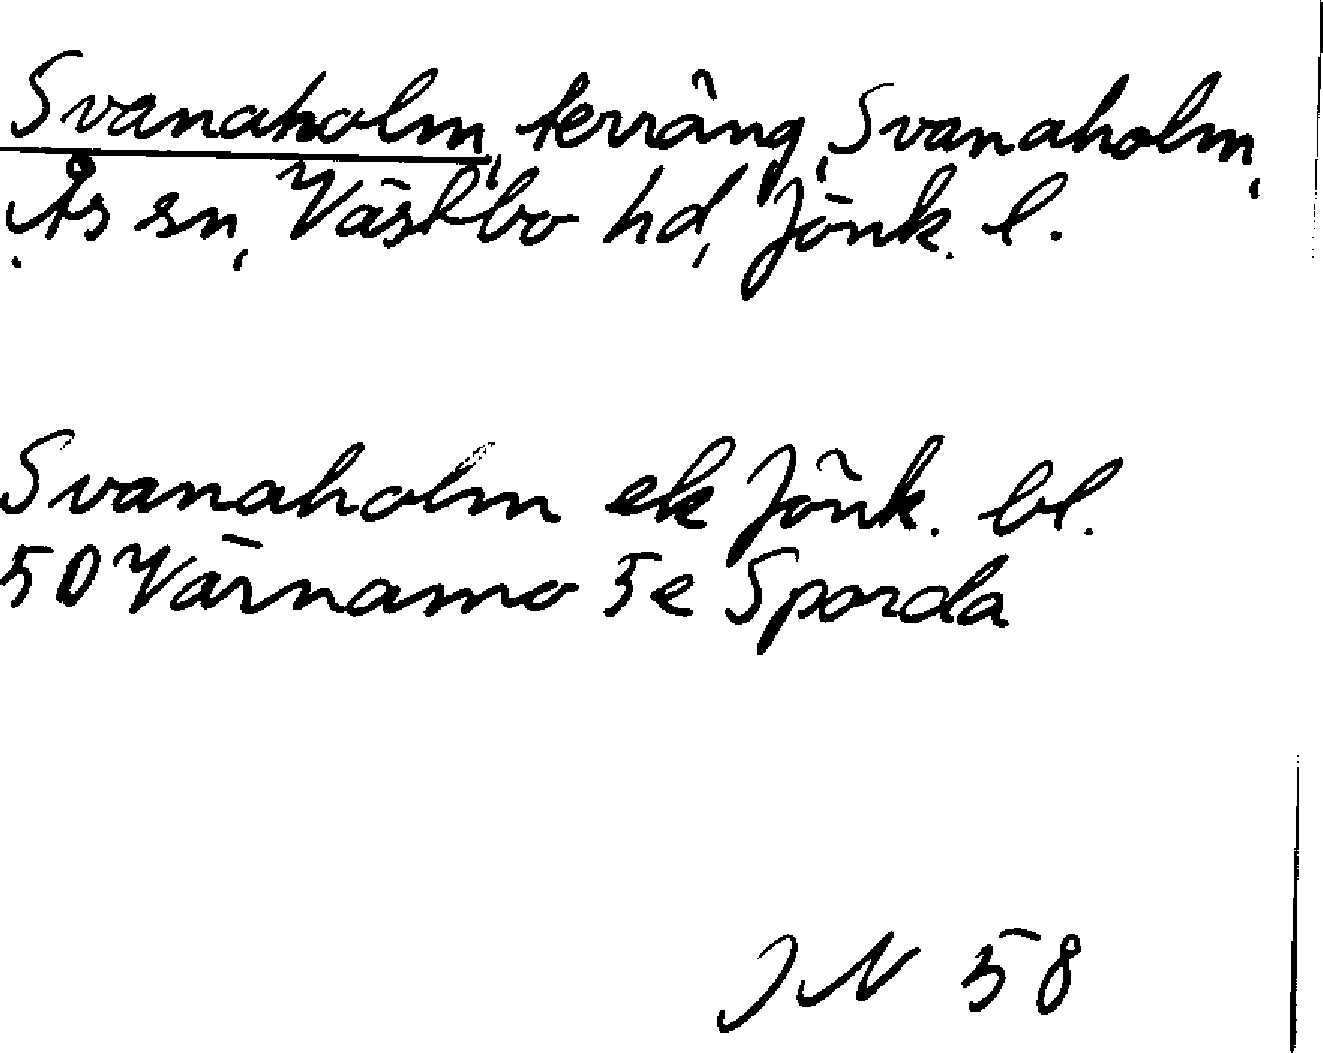 Svanaholm, terräng, Svanaholm,
Ås sn, Västbo hd, Jönk. l.
Svanaholm ek Jönk. bl.
50 Värnamo 5e Sporda
JN 58